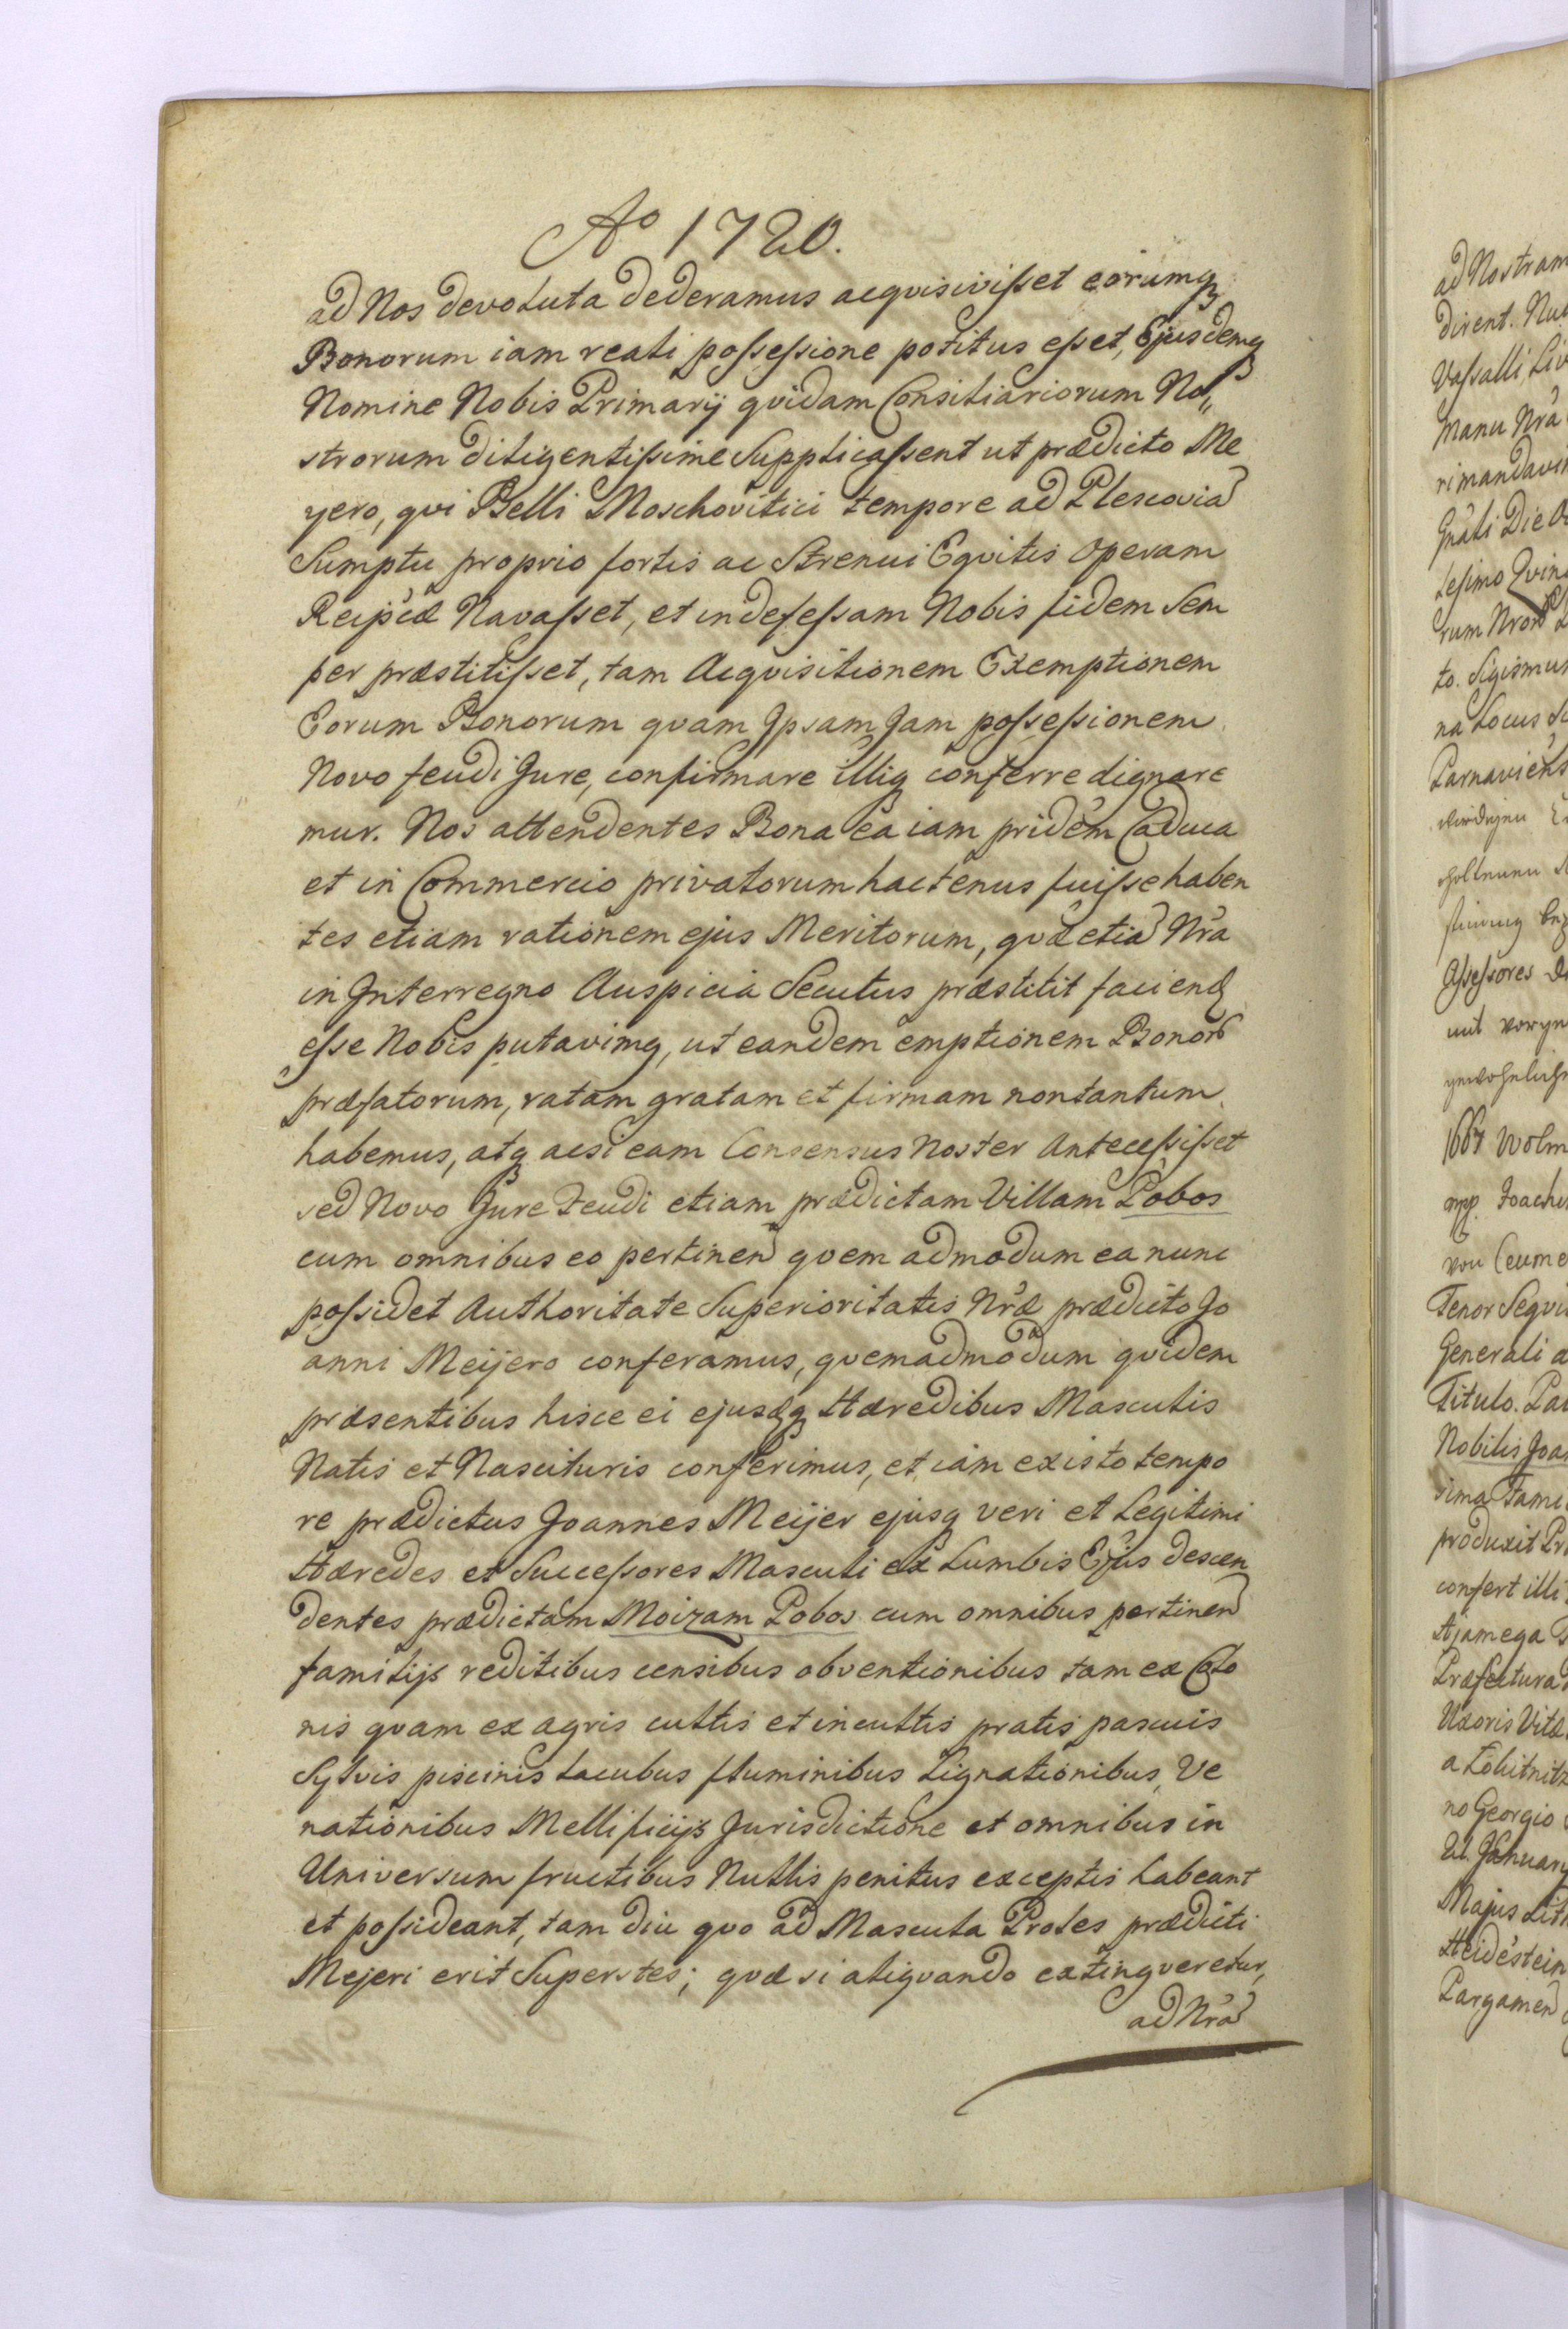 Ao 1720.
ad Nos devoluta dederamus acqvisivisset eorumq
Bonorum iam reali possessione potitus esset, Ejusdemq
Nomine Nobis Primarij qvidam Consiliariorum No
strorum diligentissime Supplicassent ut prædicto Me
yero, qvi Belli Moschovitici tempore ad Plescoviã
Sumptu proprio fortis ac Strenui Eqvitis Operam
Reipcæ Navasset, et indefessam Nobis fidem Sem
per præstitisset, tam Acqvisitionem Exemptionem
Eorum Bonorum qvam Ipsam Jam possessionem
Novo feudi Jure, confirmare illiq conferre dignare
mur. Nos attendentes Bona ea iam pridem Caduca
et in Commercio privatorum hactenus fuisse haben
tes etiam rationem ejus Meritorum, qvæ etiã Nra
in Interregno Auspicia Secutus præstitit faciend
esse Nobis putavimq, ut eandem emptionem Bonor
præfatorum, ratam gratam et firmam non tantum
habemus, atq acsi eam Consensus Noster Antecessisset
sed Novo Jure Feudi etiam prædictam Villam Pobos
cum omnibus eo pertinen qvem admodum ea nunc
possidet Authoritate Superioritatis Nræ prædicto Jo
anni Meijero conferamus, qvemadmodum qvidem
præsentibus hisce ei ejusdq Hæredibus Masculis
Natis et Nascituris conferimus, et iam ex isto tempo
re prædictus Joannes Meijer ejusq veri et Legitimi
Hæredes et Successores Masculi ex Lumbis Ejus descen
dentes prædictam Moizam Pobos cum omnibus pertinen
familijs reditibus censibus obventionibus tam ex Colo
nis qvam ex agris cultis et incultis pratis pascuis
Sylvis piscinis Lacubus fluminibus Lignationibus, Ve
nationibus Mellificijs Jurisdictione et omnibus in
Universum fructibus Nullis penitus exceptis habeant
et possideant, tam diu qvo ad Mascula Proles prædicti
Mejeri erit Superstes; qvæ si aliqvando extingveretur,
ad Nrã
ad Nostram
dirent.
Vassalli, Liv
Manu Nra
rimandavi
Grati Die
tesimo Qvin
rum Nror
to. Sigismun
na Locus
Parnaviens
Assessores
mit
1667 Wolm
mp. Joach
von Ceume
Tenor Seqvi
Generali
Titulo. Par
Nobilis Joa
sima Fami
produxit Pr
confert illi
Ajamega
Præfectura
Uxoris Vitæ
no Georgio
21. January
Majus Lit
Heidestein
Pargamen